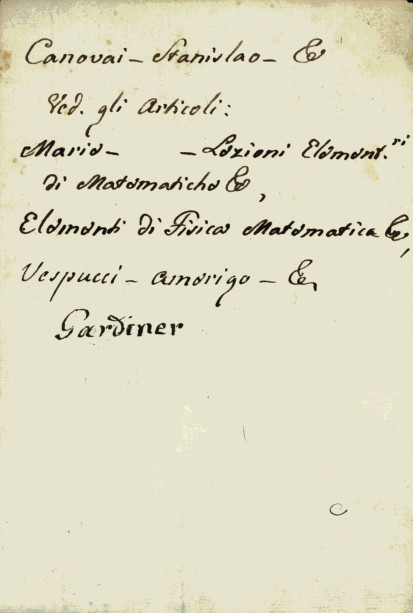 Canovai - Stanislao - &
Ved. gli Articoli:
Mario - - Lezioni Element.ri
di Matematiche &,
Elementi di Fisica Matematica &,
Vespucci - Amerigo - &,
Gardiner
C